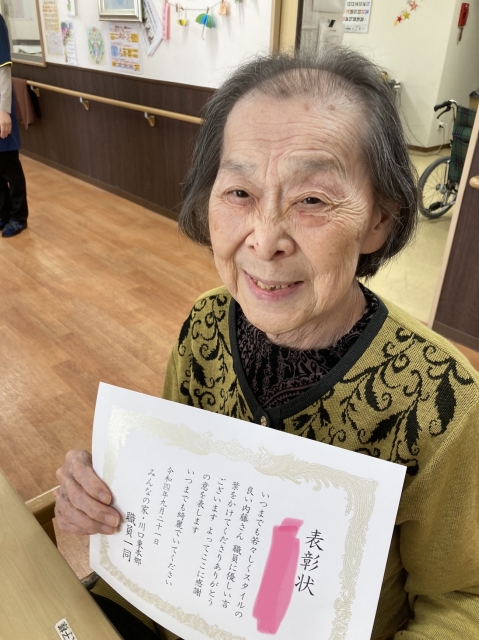 表彰状
いつまでも若々しくスタイルの
良い内藤さん 職員に優しい言
葉をかけてくださりありがとう
ございます よってここに感謝
の意を表します
いつまでも綺麗でいてください
令和四年九月二十一日
みんなの家・川口東本郷
職員一同